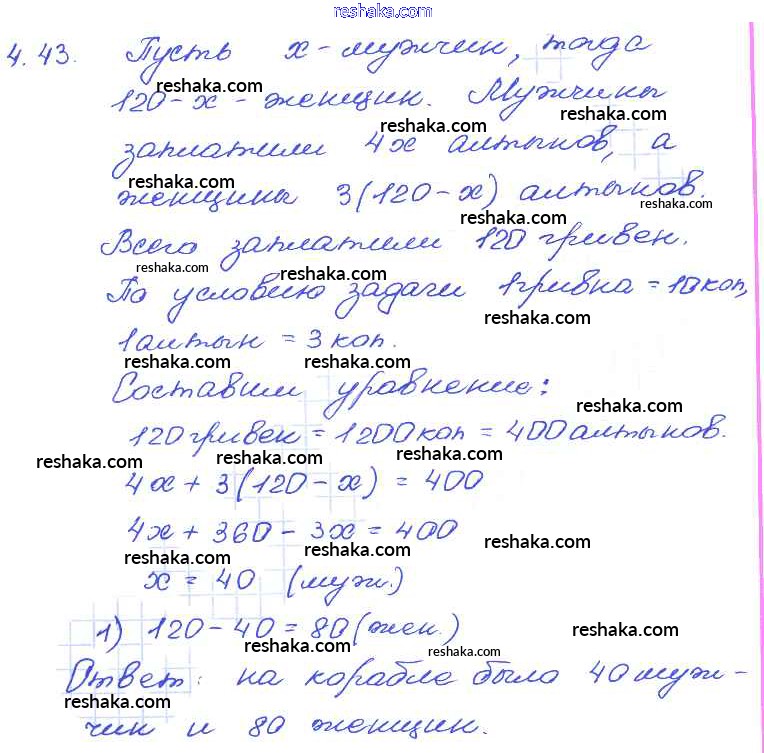 reshaka.com
4.43. Пусть x - мужчин, тогда
reshaka.com
120 - x - женщин. Мужчины
reshaka.com reshaka.com
заплатили 4x алтынов, а
reshaka.com reshaka.com
женщины 3(120 - x) алтынов.
reshaka.com reshaka.com
Всего заплатили 120 гривен.
reshaka.com reshaka.com
По условию задачи 1гривна = 10коп,
reshaka.com
1алтын = 3 коп.
reshaka.com reshaka.com
Составим уравнение:
reshaka.com
120гривен = 1200коп = 400алтынов.
reshaka.com reshaka.com
4x + 3(120 - x) = 400
4x + 360 - 3x = 400
reshaka.com
reshaka.com reshaka.com
x = 40 (муж.)
1) 120 - 40 = 80(жен.)
reshaka.com
reshaka.com reshaka.com
Ответ: на корабле было 40муж-
reshaka.com
чин и 80 женщин.
reshaka.com